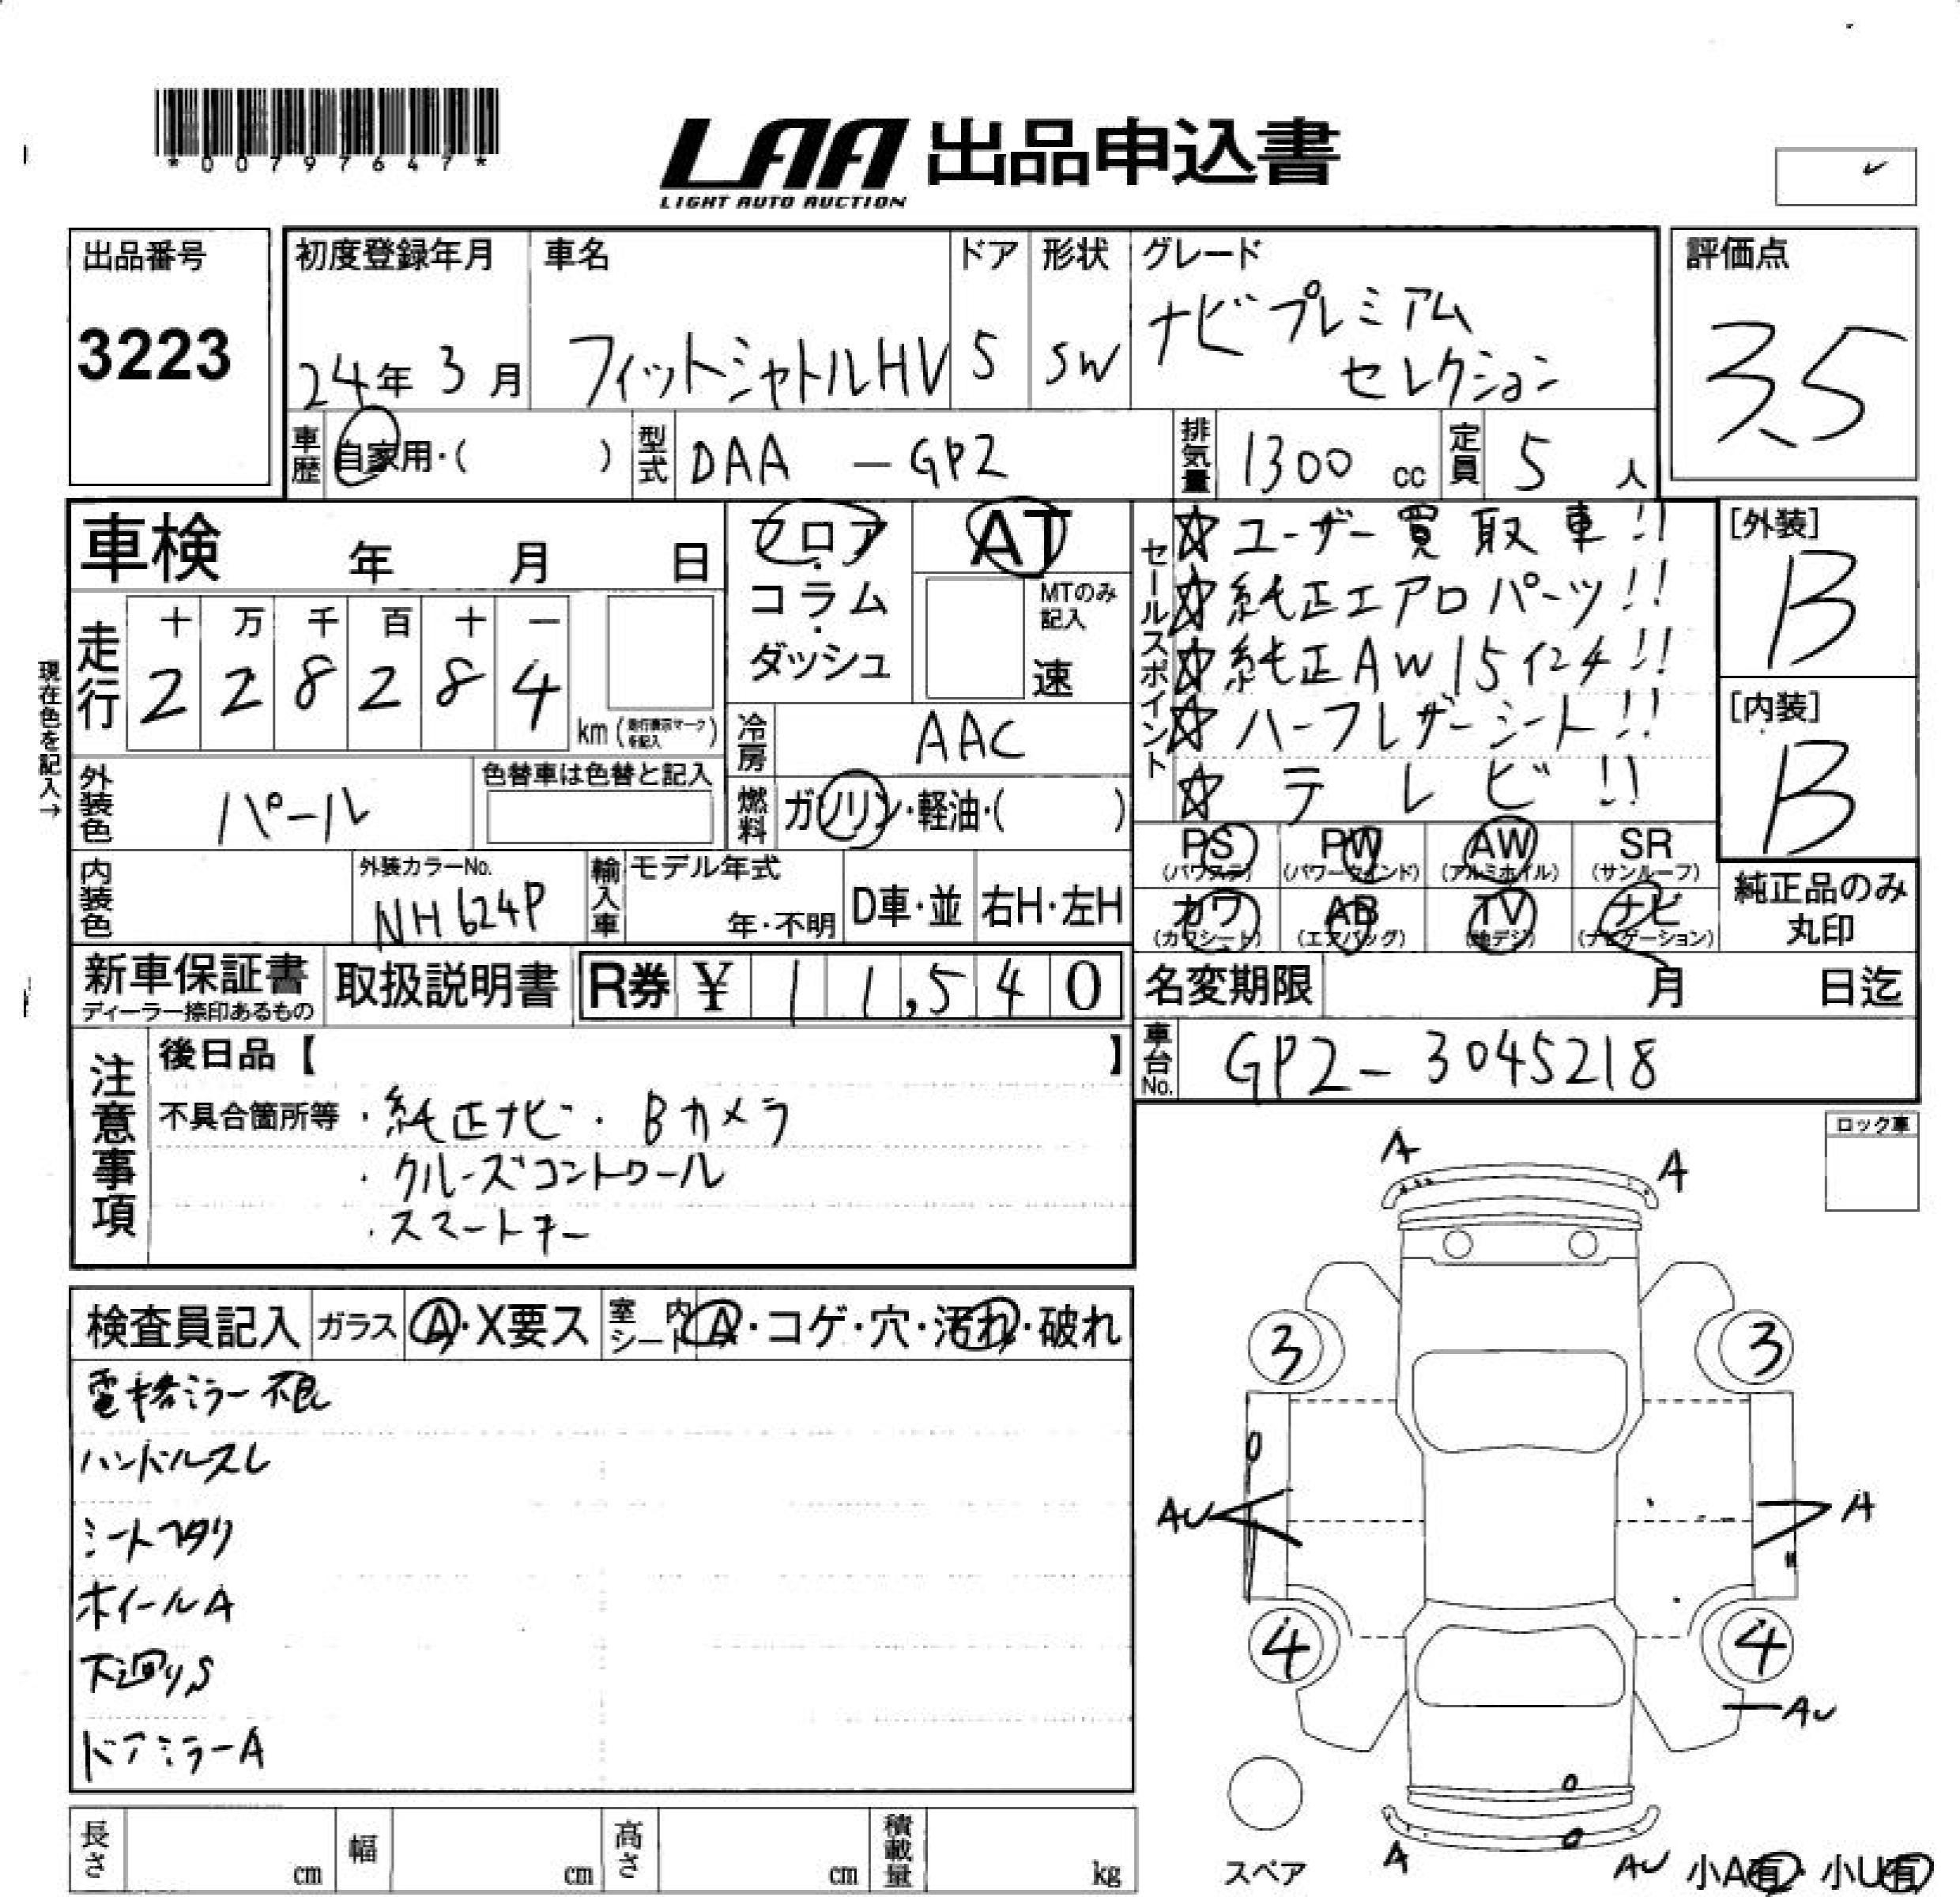 *00797647*
LAA 出品申込書
LIGHT AUTO AUCTION
出品番号
3223
初度登録年月
24年 3月
車名
フィットシャトルHV
ドア
5
形状
SW
グレード
ナビプレミアム
セレクション
評価点
3.5
車歴
自家用・( )
型式
DAA - GP2
排気量
1300 cc
定員
5 人
車検 年 月 日
現在色を記入→
走行
十 万 千 百 十 一
2 2 8 2 8 4
km (走行表示マークを記入)
フロア・
コラム・
ダッシュ
AT
MTのみ
記入
速
冷房
AAC
外装色
パール
色替車は色替と記入
燃料
ガソリン・軽油・( )
内装色
外装カラーNo.
NH624P
輸入車
モデル年式
年・不明
D車・並
右H・左H
セールスポイント
☆ユーザー買取車!!
☆純正エアロパーツ!!
☆純正AW15インチ!!
☆ハーフレザーシート!!
☆テレビ!!
[外装]
B
[内装]
B
PS PW AW SR
(パワステ) (パワーウインド) (アルミホイル) (サンルーフ)
カワ AB TV ナビ
(カワシート) (エアバッグ) (地デジ) (ナビゲーション)
純正品のみ
丸印
新車保証書
ディーラー捺印あるもの
取扱説明書
R券 ¥ 11,540
名変期限 月 日迄
車台No.
GP2-3045218
注意事項
後日品【 】
不具合箇所等 ・純正ナビ・Bカメラ
・クルーズコントロール
・スマートキー
ロック車
検査員記入
ガラス
A・X要ス
室内
シート
A・コゲ・穴・汚れ・破れ
電格ミラー不良
ハンドルスレ
シートヘタリ
ホイールA
下廻りS
ドアミラーA
A A
3 3
AU A
4 4
AU
スペア
A AU
小A有・小U有
長さ cm
幅 cm
高さ cm
積載量 kg